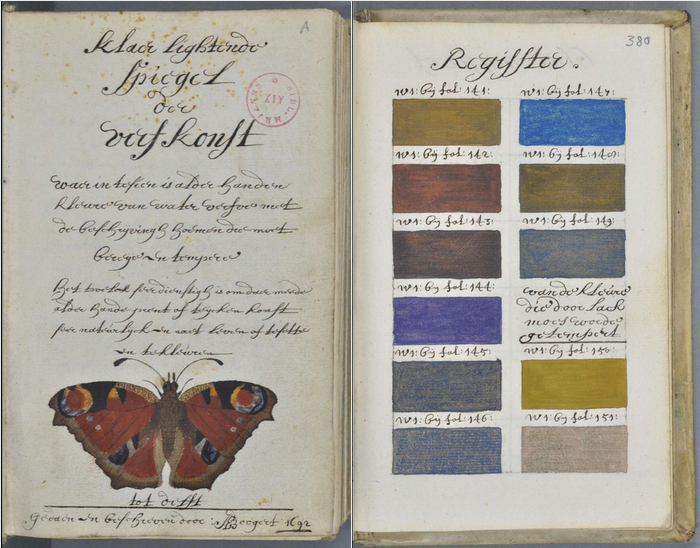 A
klaer lightende
Spiegel
der
verfkonst
waer in te sien is alder handen
kleure van water verfve met
de beschrijvingh hoemen die moet
berege en tempere
Het welck seer dienstigh is om daer meede
alder hande prent of teycken konst
seer natuerlyck en naer leven of
en te kleuren
BIBL. MEJANES
AIX
tot delft
Gedaen en beschreven door: A Boogert 1692
380
Regisster.
N1: bÿ fol: 141:
N1: bÿ fol: 147:
N1: bÿ fol: 142:
N1: bÿ fol: 148:
N1: bÿ fol: 143:
N1: bÿ fol: 149:
N1: bÿ fol: 144:
van de kleure
die door lack
moet worde
getempert
N1: bÿ fol: 145:
N1: bÿ fol: 150:
N1: bÿ fol: 146:
N1: bÿ fol: 151: